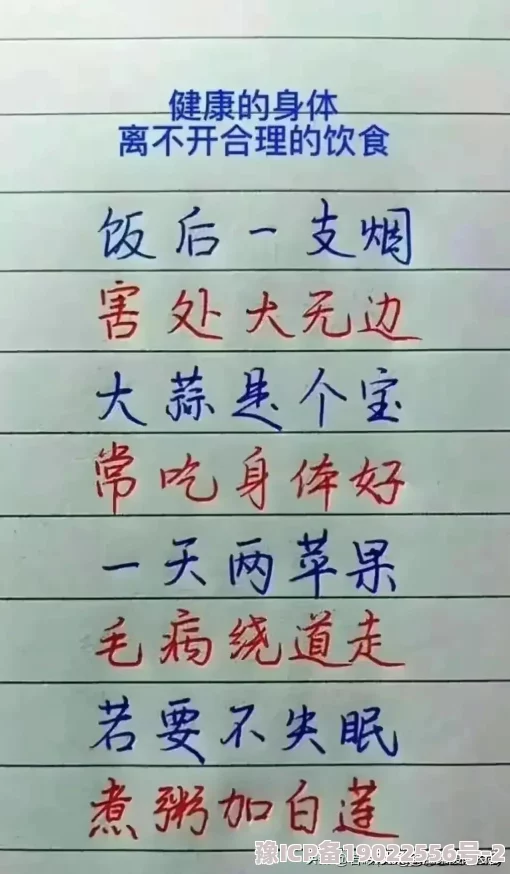 健康的身体
离不开合理的饮食
饭后一支烟
害处大无边
大蒜是个宝
常吃身体好
一天两苹果
毛病绕道走
若要不失眠
煮粥加白莲
豫ICP备19022556号-2